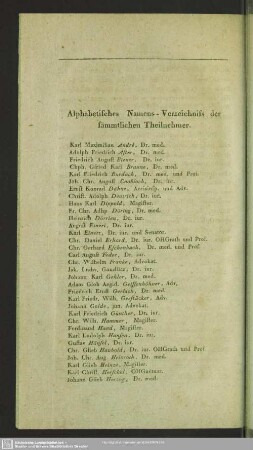 Alphabetisches Namens-Verzeichniss der
sämmtlichen Theilnehmer.
Karl Maximilian André, Dr. med.
Adolph Friedrich Dr. med.
Friedrich August Dr. iur.
Chph. Gottlob Karl Braune, Dr. med.
Karl Friedrich Burdach, Dr. med. und Prof.
Joh. Chr. August Clarus, Dr.
Ernst Konrad und Adv.
Christ. Adolph Deutrich, Dr. iur.
Hans Karl Dippoldt, Magister.
Fr. Chr. Adlep Döring, Dr. med.
Heinrich Dörrien, Dr. iur.
August Dr. iur.
Karl Einert, Dr. iur. und Senator.
Chr. Daniel Erhard, Dr. iur. OHGrath und Prof.
Chr. Gerhard Eschenbach, Dr. med. und Prof.
Carl August Dr. iur.
Chr. Wilhelm Advokat.
Joh. Ludw. Gaudlitz, Dr. iur.
Johann Karl Gehler, Dr. med.
Adam Glob August. Adv.
Friedrich Ernst Gerlach, Dr. med.
Karl Friedr. Wilh. Gerstäcker, Adv.
Johann jun. Advokat.
Karl Friedrich Günther, Dr. iur.
Chr. Wilh. Hammer, Magister.
Ferdinand Hand, Magister.
Karl Ludwigk Dr. iur.
Gustav Hänsel, Dr. iur.
Chr. Glieb Haubold, Dr. iur. OHGrath und Prof.
Joh. Chr. Aug. Heinroth, Dr. med.
Karl Glieb Magister.
Karl Christ.
Johann Glieb Herzog, Dr. med.